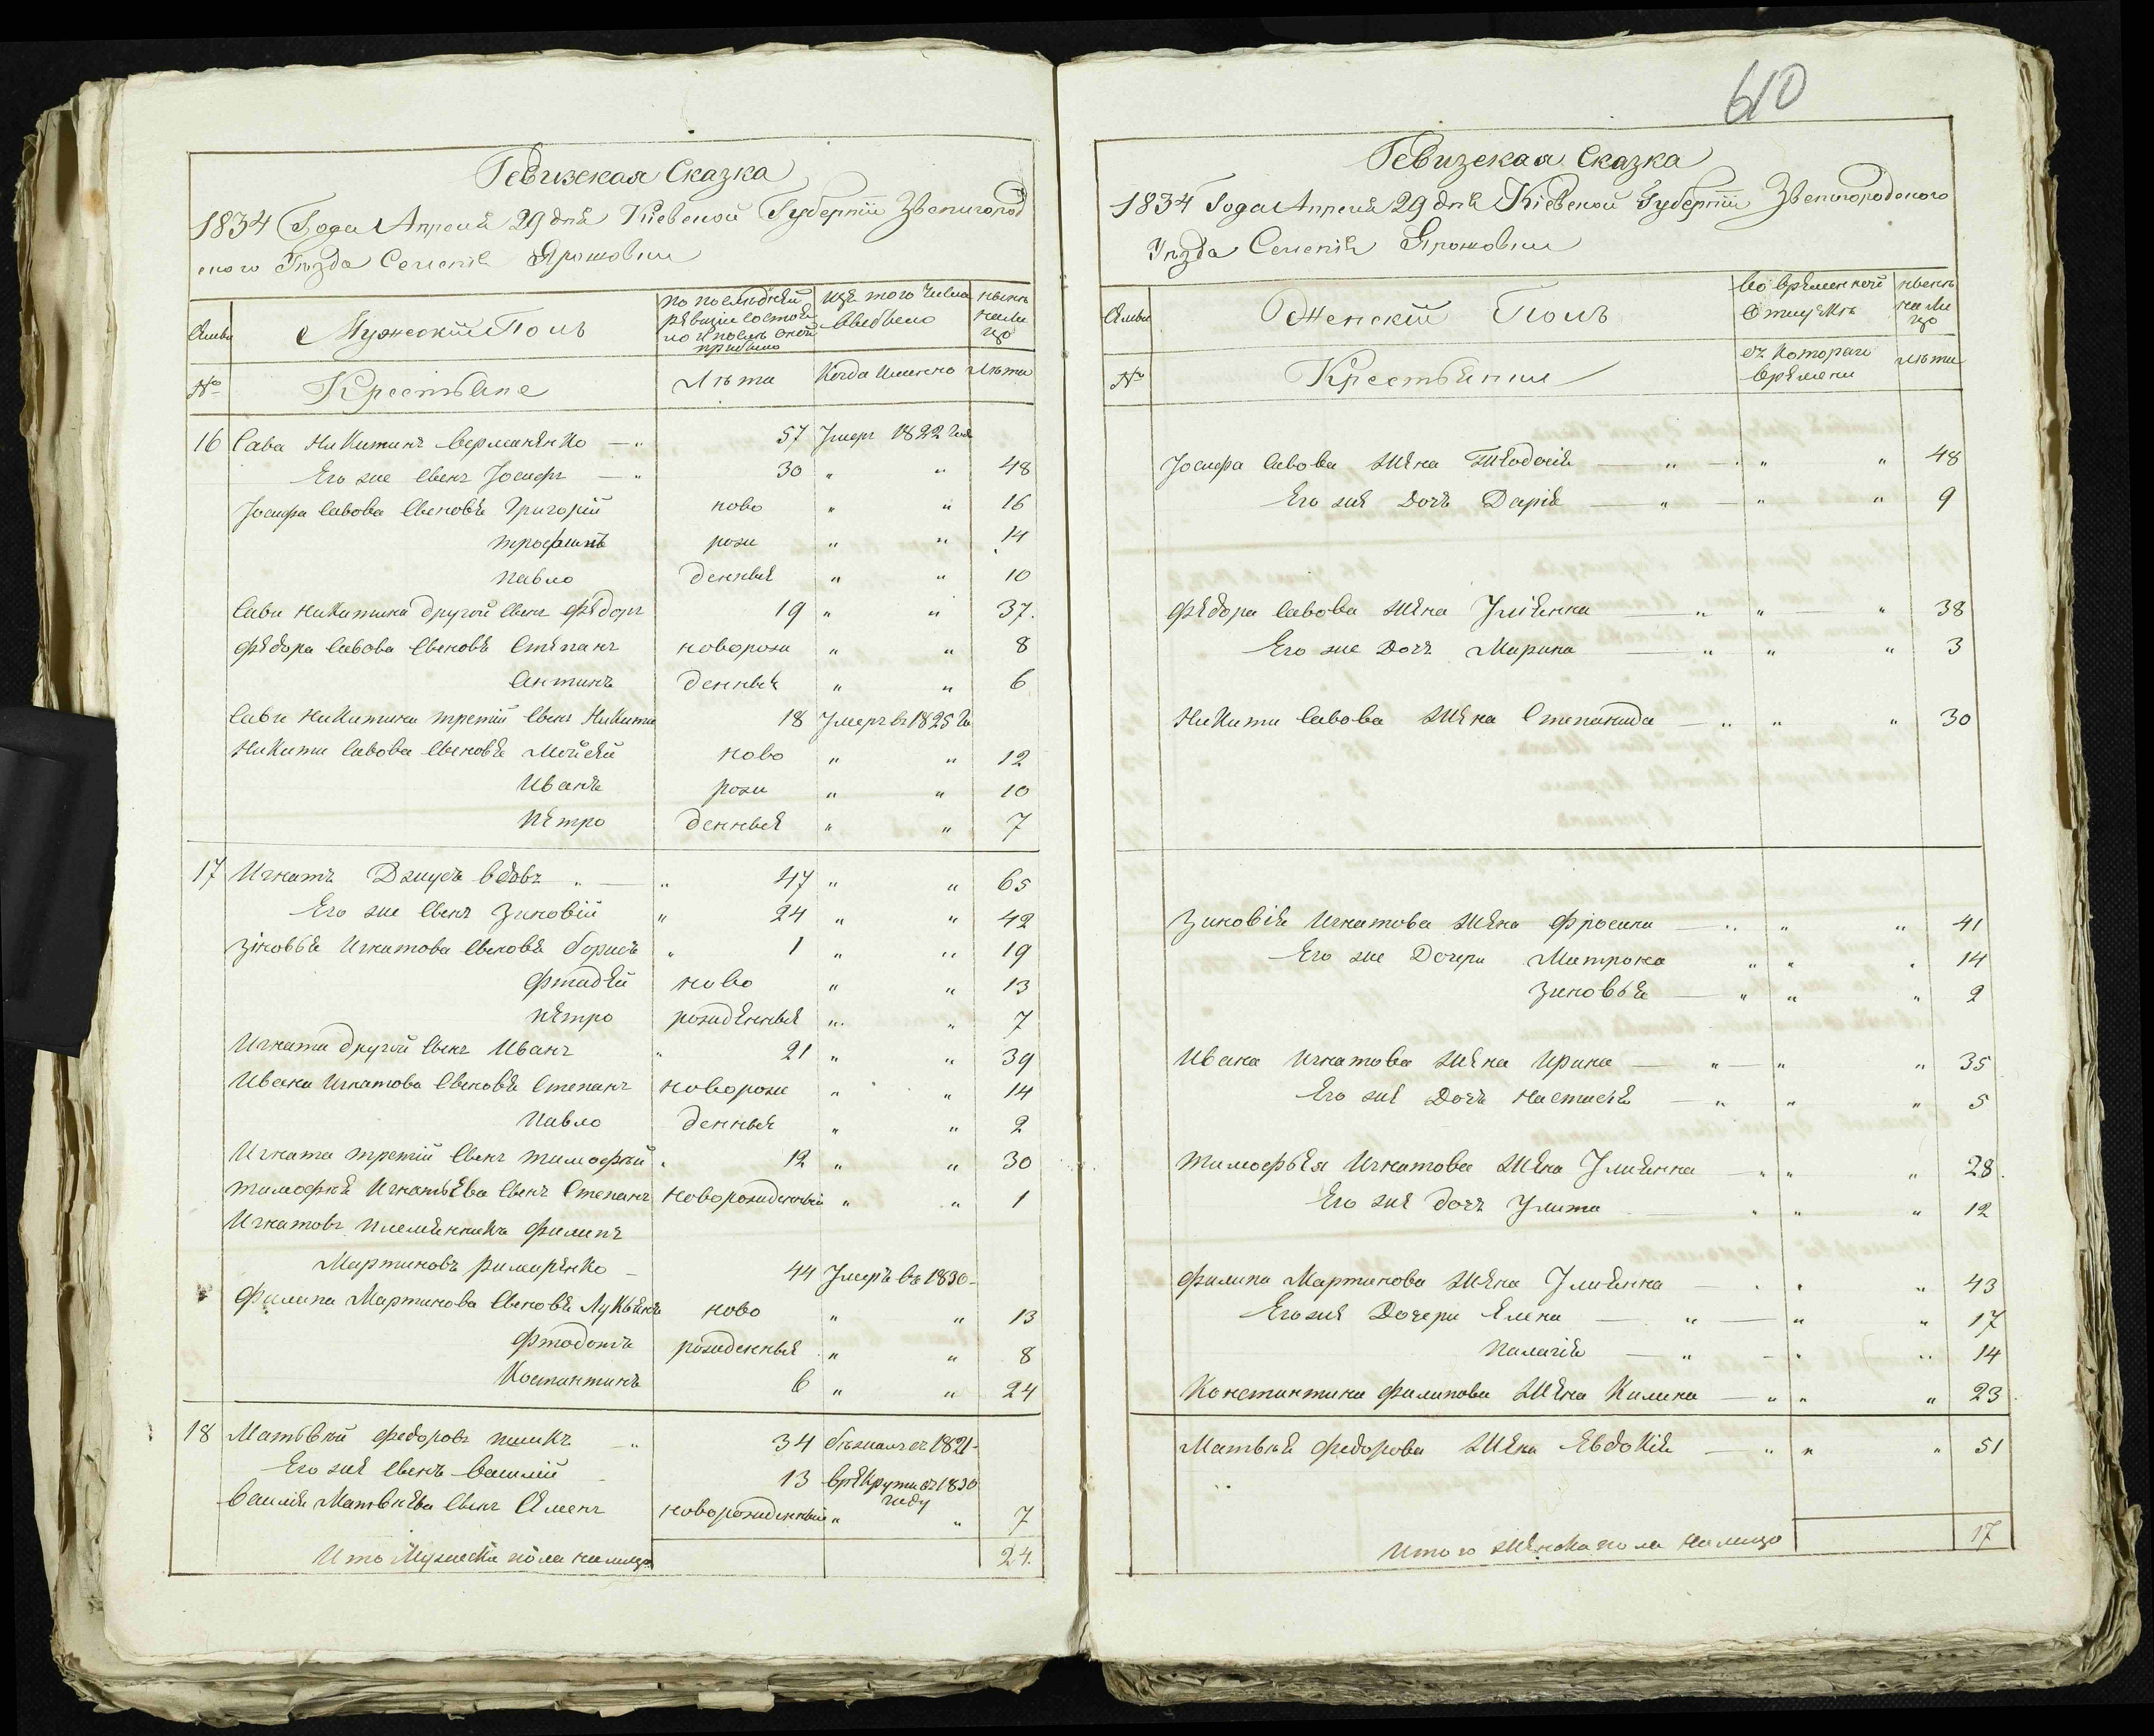 Ревизская Сказка
1834 Года Апреля 29 дня Кіевской Губерніи Звенигород
ского Уезда Селенія Ярошовки
Семьи
Мужескій Полъ
по последней ревизіи состояло и после оной прибыло
Изъ того числа выбыло
ныне на лицо
№
Крестьяне
Лѣта
Когда Именно
лѣта
16 Сава Никитинъ Верменѣнко — " 57 Умеръ 1822 Года
Его же Сынъ Іосифъ — " 30 " " 48
Іосифа Савова Сыновья Григорій ново " " 16
трофимъ рож " " 14
павло денныя " " 10
Савы Никитина другой Сынъ Федоръ 19 " " 37.
Федора Савова Сыновья Степанъ новорож " " 8
Антинъ денныя " " 6
Савы Никитина третій Сынъ Никита 18 Умеръ в 1825 Го
Никиты Савова Сыновья Мойсей ново " " 12
Иванъ рож " " 10
Петро денныя " " 7
17 Игнатъ Джусъ вдовъ . — " 47 " " 65
Его же Сынъ Зиновій " 24 " " 42
Зіновья Игнатова Сыновья борисъ " 1 " " 19
Фтадей ново " " 13
петро рожденныя " " 7
Игната другой Сынъ Иванъ " 21 " " 39
Ивана Игнатова Сыновья Степанъ новорож " " 14
павло денныя " " 2
Игната третій Сынъ тимофей . 12 " " 30
тимофея Игнатьева Сынъ Степанъ новорожденный " " 1
Игнатовъ племянникъ филипъ
Мартиновъ римарѣнко — 44 Умеръ въ 1830 -
Филипа Мартинова Сыновья Лукьянъ ново " " 13
Фтодотъ рожденныя " " 8
Костантинъ 6 " " 24
18 Матвѣй Федоровъ — " 34 бежалъ съ 1821 -
Его же Сынъ Василій 13 врекруты въ 1830 году
Василія Матвѣева Сынъ Семенъ новорожденный " " 7
Итого Мужеска пола налицо 24.
610
Ревизская Сказка
1834 Года Апреля 29 дня Кіевской Губерніи Звенигородского
Уезда Селенія Ярошовки
Семьи
Женскій Полъ
Во временной отлучкѣ
ныне на лицо
№
Крестьянки
съ котораго времени
лѣта
Іосифа Савова жена — " — " " 48
Его же Дочь Дарія — " — " " 9
Федора Савова жена Улияна — " " — " 38
Его же Дочь Марина — " " " 3
Никиты Савова жена Степанида — " " " 30
Зиновія Игнатова жена Фросина — " " " 41
Его же Дочери Матрона " " " 14
Зиновья — " " " 2
Ивана Игнатова жена Ирина — " — " " 35
Его же Дочь Настасія — " " " 5
тимофѣя Игнатова жена Улиянна — " " " 28.
Его же дочь Улита — " " " 12
Филипа Мартинова жена Улиянна — " " " 43
Его же Дочери Елена — " — " " 17
Палагія — " — " " 14
Константина филипова жена Килина — " " " 23
Матвѣя Федорова жена Евдокія — " " " 51
Итого женска пола налицо 17